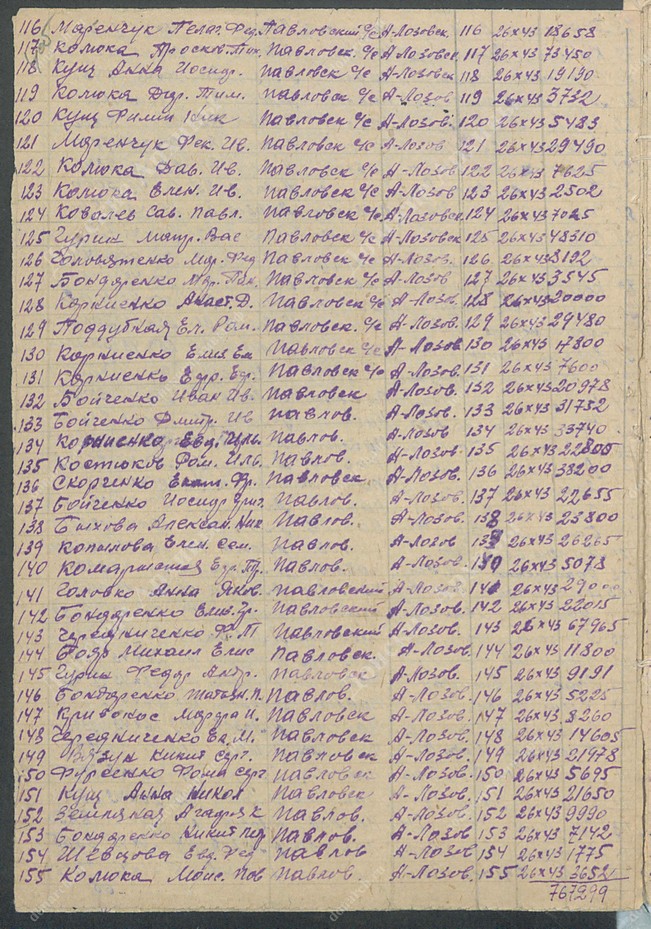 116 Маренчук Пелаг. Фед. Павловский с/с А-Лозовск. 116 26×43 18658
117 Колюка Просков. Тим. Павловск. с/с А-Лозовск 117 26×43 73450
118 Кущ Анна Иосифр. Павловск с/с А-Лозовск 118 26×43 19190
119 Колюка Тим. Павловск с/с А-Лозов 119 26×43 3732
120 Кущ Филип Ник Павловск с/с А-Лозов. 120 26×43 5483
121 Маренчук Фек. Ив. Павловск с/с А-Лозов 121 26×43 29490
122 Колюка Дав. Ив. Павловск с/с А-Лозов 122 26×43 7625
123 Колюка Елен. Ив. Павловск с/с А-Лозов 123 26×43 2502
124 Ковалев Сав. Павл. Павловск с/с А-Лозовск. 124 26×43 7025
125 Гурин Матр. Вас Павловск с/с А-Лозовск 125 26×43 48310
126 Мар. Фед Павловск с/с А-Лозов. 126 26×43 8192
127 Бондаренко Павловск с/с А-Лозов 127 26×43 3545
128 Корниенко Анаст. Д. Павловск с/с А-Лозов. 128 26×43 20000
129 Поддубная Ел. Ром. Павловск. с/с А-Лозов. 129 26×43 29480
130 Корниенко Елиз Ем Павловск с/с А-Лозов 130 26×43 17800
131 Корниенко Егор. Егр. Павловск с/с А-Лозов. 131 26×43 7600
132 Бойченко Иван Ив. Павловск А-Лозов. 132 26×43 20978
133 Бойченко Дмитр. Ив Павлов. А-Лозов. 133 26×43 31732
134 Корниенко Евд. Павлов. А-Лозов 134 26×43 33740
135 Костюков Ром. Иль. Павлов. А-Лозов. 135 26×43 22805
136 Скорченко Екат. Павловск А-Лозов. 136 26×43 38200
137 Бойченко Иосиф Григ. Павлов. А-Лозов. 137 26×43 22655
138 Быхова Алексан. Ник Павлов. А-Лозов. 138 26×43 23800
139 Копылова Елен. Сем. Павлов. А-Лозов 139 26×43 26265
140 Павлов. А-Лозов. 140 26×43 5078
141 Головко Анна Яков. Павловский А-Лозов. 141 26×43 29000
142 Бондаренко Елиз. Гр. Павловский А-Лозов. 142 26×43 22015
143 Чередниченко Ф. П Павловский А-Лозов. 143 26×43 67965
144 Бодр Михаил Елис Павловск. А-Лозов. 144 26×43 11800
145 Гурин Федор Андр. Павловск А-Лозов. 145 26×43 9191
146 Бондаренко Татьян. П. Павлов. А-Лозов. 146 26×43 5225
147 Кривонос Марфа И. Павловск А-Лозов. 147 26×43 8260
148 Чередниченко Ев. М. Павловск А-Лозов. 148 26×43 14605
149 Вязун Никит Серг. Павловск А-Лозов. 149 26×43 21978
150 Фурсенко Фома Серг Павловск А-Лозов. 150 26×43 5695
151 Кущ Анна Никол Павловск А-Лозов. 151 26×43 21650
152 Земляная Агафья К Павлов. А-Лозов. 152 26×43 9990
153 Бондаренко Никит Пед Павлов. А-Лозов 153 26×43 7142
154 Шевцова Евд. Фед Павлов А-Лозов 154 26×43 1775
155 Колюка Моис. Пов Павлов. А-Лозов. 155 26×43 3652
767299